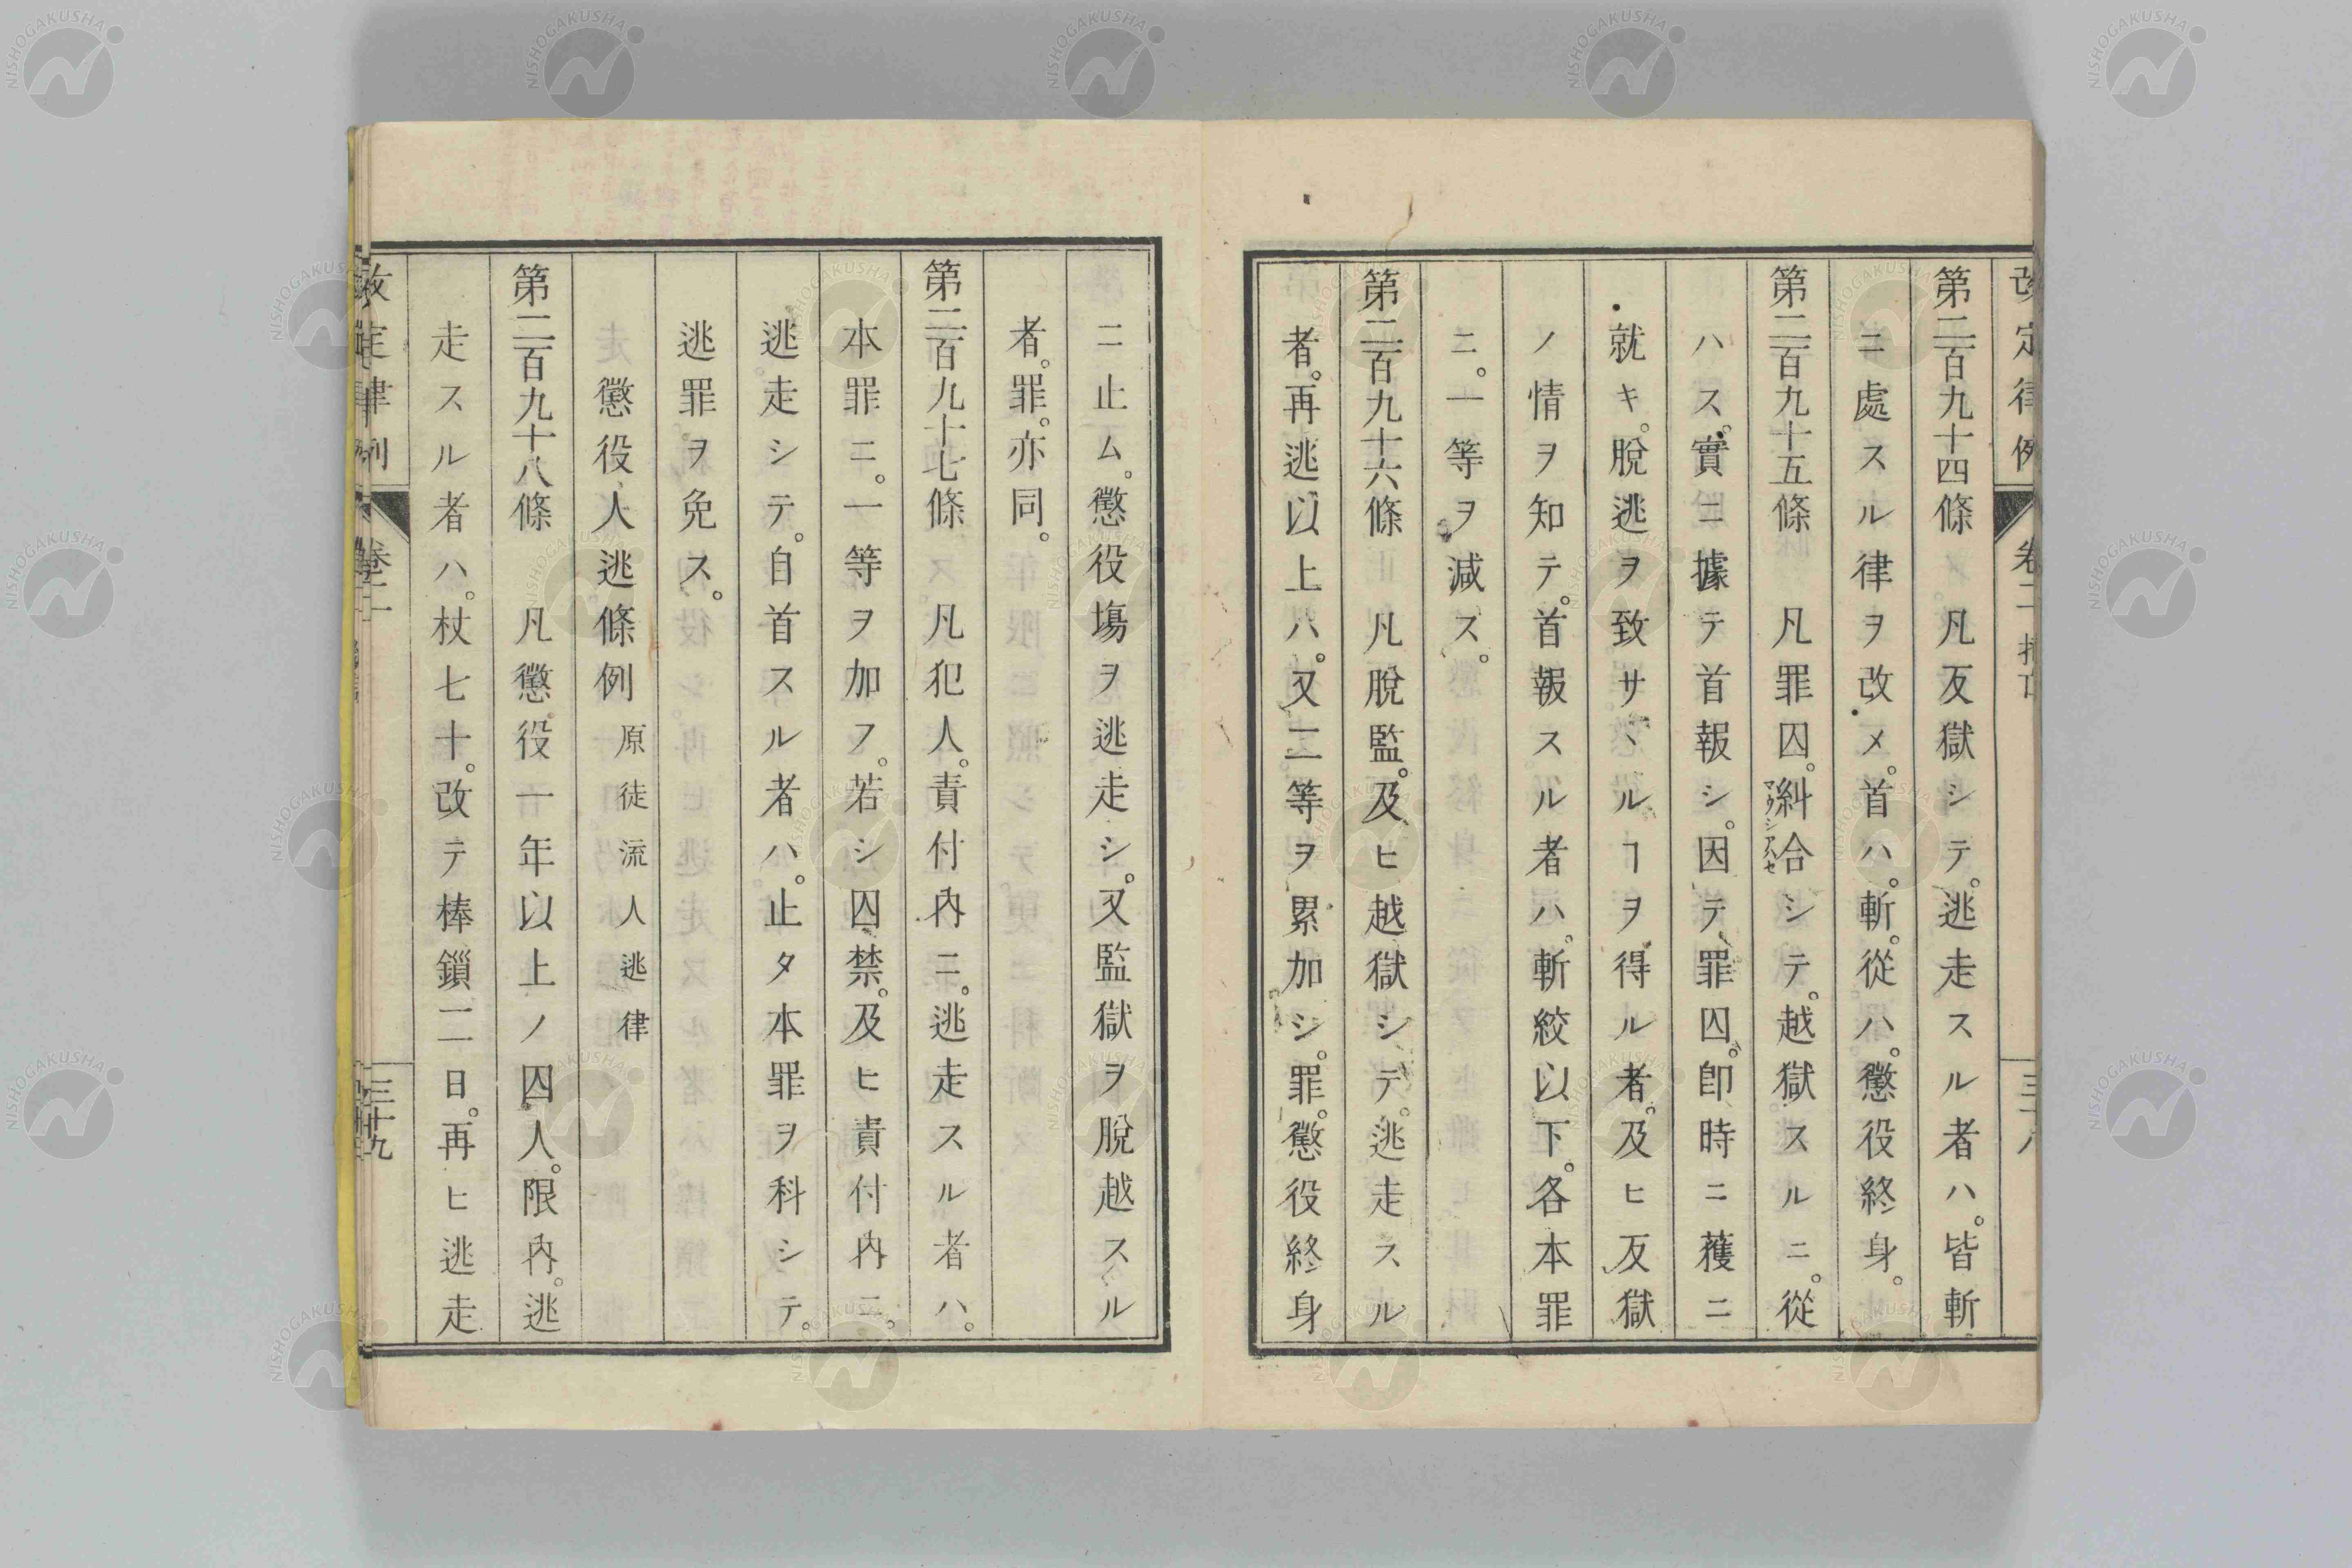 改定律例 卷二 捕亡 三十八
第二百九十四條 凡反獄シテ。逃走スル者ハ。皆斬
ニ處スル律ヲ改メ。首ハ。斬。從ハ。懲役終身。
第二百九十五條 凡罪囚。糾合シテ。越獄スルニ。從
ハス。實ニ據テ首報シ。因テ罪囚。卽時ニ獲ニ
就キ。脫逃ヲ致サヽルヿヲ得ル者。及ヒ反獄
ノ情ヲ知テ。首報スル者ハ。斬絞以下。各本罪
ニ。一等ヲ減ス。
第二百九十六條 凡脫監。及ヒ越獄シテ。逃走スル
者。再逃以上ハ。又二等ヲ累加シ。罪。懲役終身
ニ止ム。懲役塲ヲ逃走シ。又監獄ヲ脫越スル
者。罪。亦同。
第二百九十七條 凡犯人。責付內ニ。逃走スル者ハ。
本罪ニ。一等ヲ加フ。若シ囚禁。及ヒ責付內ニ。
逃走シテ。自首スル者ハ。止タ本罪ヲ科シテ。
逃罪ヲ免ス。
懲役人逃條例 原徒流人逃律
第二百九十八條 凡懲役一年以上ノ囚人。限內。逃
走スル者ハ。杖七十。改テ棒鎖二日。再ヒ逃走
改定律例 卷二 三十九
NISHOGAKUSHA